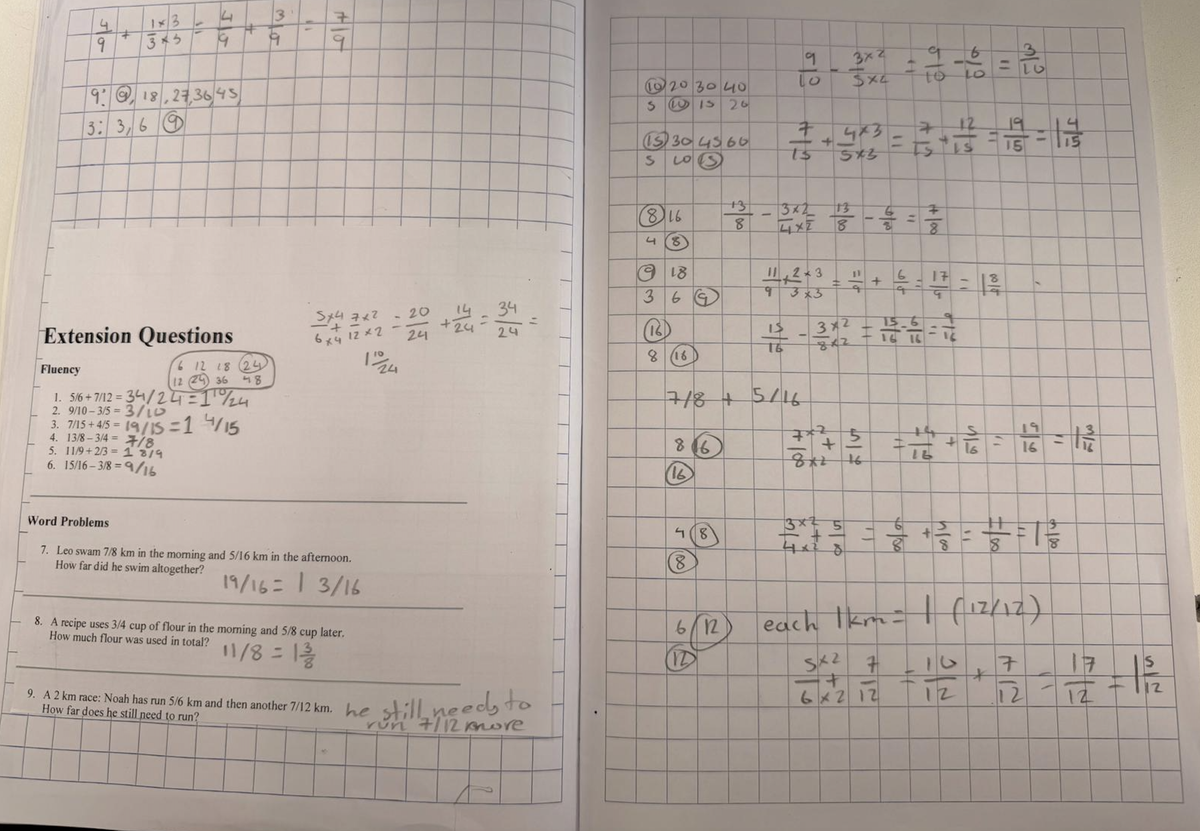 4/9 + 1×3/3×3 = 4/9 + 3/9 = 7/9
9: 9, 18, 27, 36, 45,
3: 3, 6 9
Extension Questions
5×4/6×4 + 7×2/12×2 = 20/24 + 14/24 = 34/24 =
1 10/24
Fluency
6 12 18 24
12 24 36 48
1. 5/6 + 7/12 = 34/24 = 1 10/24
2. 9/10 – 3/5 = 3/10
3. 7/15 + 4/5 = 19/15 = 1 4/15
4. 13/8 – 3/4 = 7/8
5. 11/9 + 2/3 = 1 8/9
6. 15/16 – 3/8 = 9/16
Word Problems
7. Leo swam 7/8 km in the morning and 5/16 km in the afternoon.
How far did he swim altogether?
19/16 = 1 3/16
8. A recipe uses 3/4 cup of flour in the morning and 5/8 cup later.
How much flour was used in total? 11/8 = 1 3/8
9. A 2 km race: Noah has run 5/6 km and then another 7/12 km.
How far does he still need to run?
he still needs to
run 7/12 more
9/10 - 3×2/5×2 = 9/10 - 6/10 = 3/10
10 20 30 40
5 10 15 20
15 30 45 60 7/15 + 4×3/5×3 = 7/15 + 12/15 = 19/15 = 1 4/15
5 10 15
8 16 13/8 - 3×2/4×2 = 13/8 - 6/8 = 7/8
4 8
9 18 11/9 + 2×3/3×3 = 11/9 + 6/9 = 17/9 = 1 8/9
3 6 9
16 15/16 - 3×2/8×2 = 15/16 - 6/16 = 9/16
8 16
7/8 + 5/16
8 16 7×2/8×2 + 5/16 = 14/16 + 5/16 = 19/16 = 1 3/16
16
4 8 3×2/4×2 + 5/8 = 6/8 + 5/8 = 11/8 = 1 3/8
8
6 12 each 1km = 1 (12/12)
12 5×2/6×2 + 7/12 = 10/12 + 7/12 = 17/12 = 1 5/12